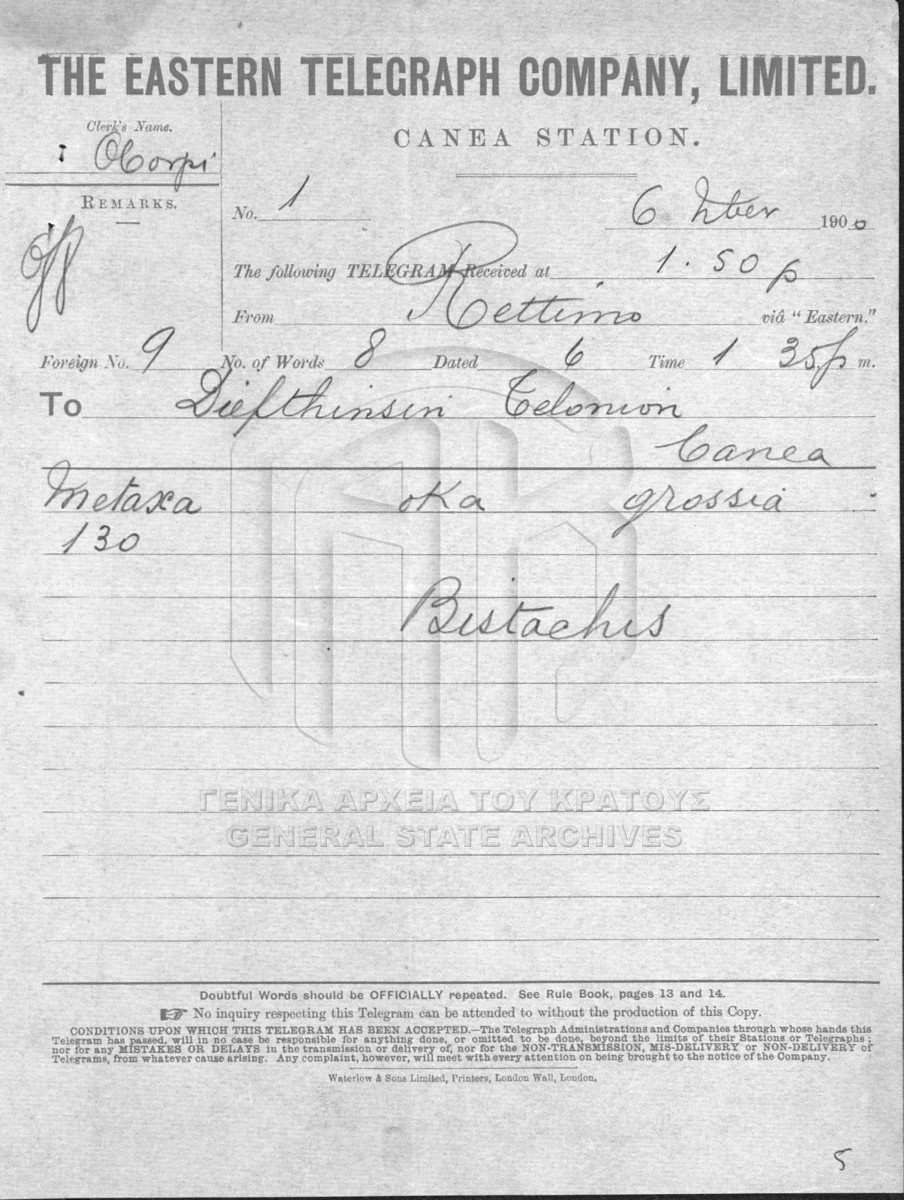 THE EASTERN TELEGRAPH COMPANY, LIMITED.
Clerk's Name.
CANEA STATION.
REMARKS.
No. 1
6 1900
Off
The following TELEGRAM Received at 1.50 p
From Rettimo viâ "Eastern."
Foreign No. 9 No. of Words 8 Dated 6 Time 1 35 p m.
To Diefthinsin Telonion
Canea
Metaxa oka grossia
130
Bistachis
ΓΕΝΙΚΑ ΑΡΧΕΙΑ ΤΟΥ ΚΡΑΤΟΥΣ
GENERAL STATE ARCHIVES
Doubtful Words should be OFFICIALLY repeated. See Rule Book, pages 13 and 14.
☞ No inquiry respecting this Telegram can be attended to without the production of this Copy.
CONDITIONS UPON WHICH THIS TELEGRAM HAS BEEN ACCEPTED.—The Telegraph Administrations and Companies through whose hands this
Telegram has passed, will in no case be responsible for anything done, or omitted to be done, beyond the limits of their Stations or Telegraphs;
nor for any MISTAKES OR DELAYS in the transmission or delivery of, nor for the NON-TRANSMISSION, MIS-DELIVERY or NON-DELIVERY of
Telegrams, from whatever cause arising. Any complaint, however, will meet with every attention on being brought to the notice of the Company.
Waterlow & Sons Limited, Printers, London Wall, London.
5